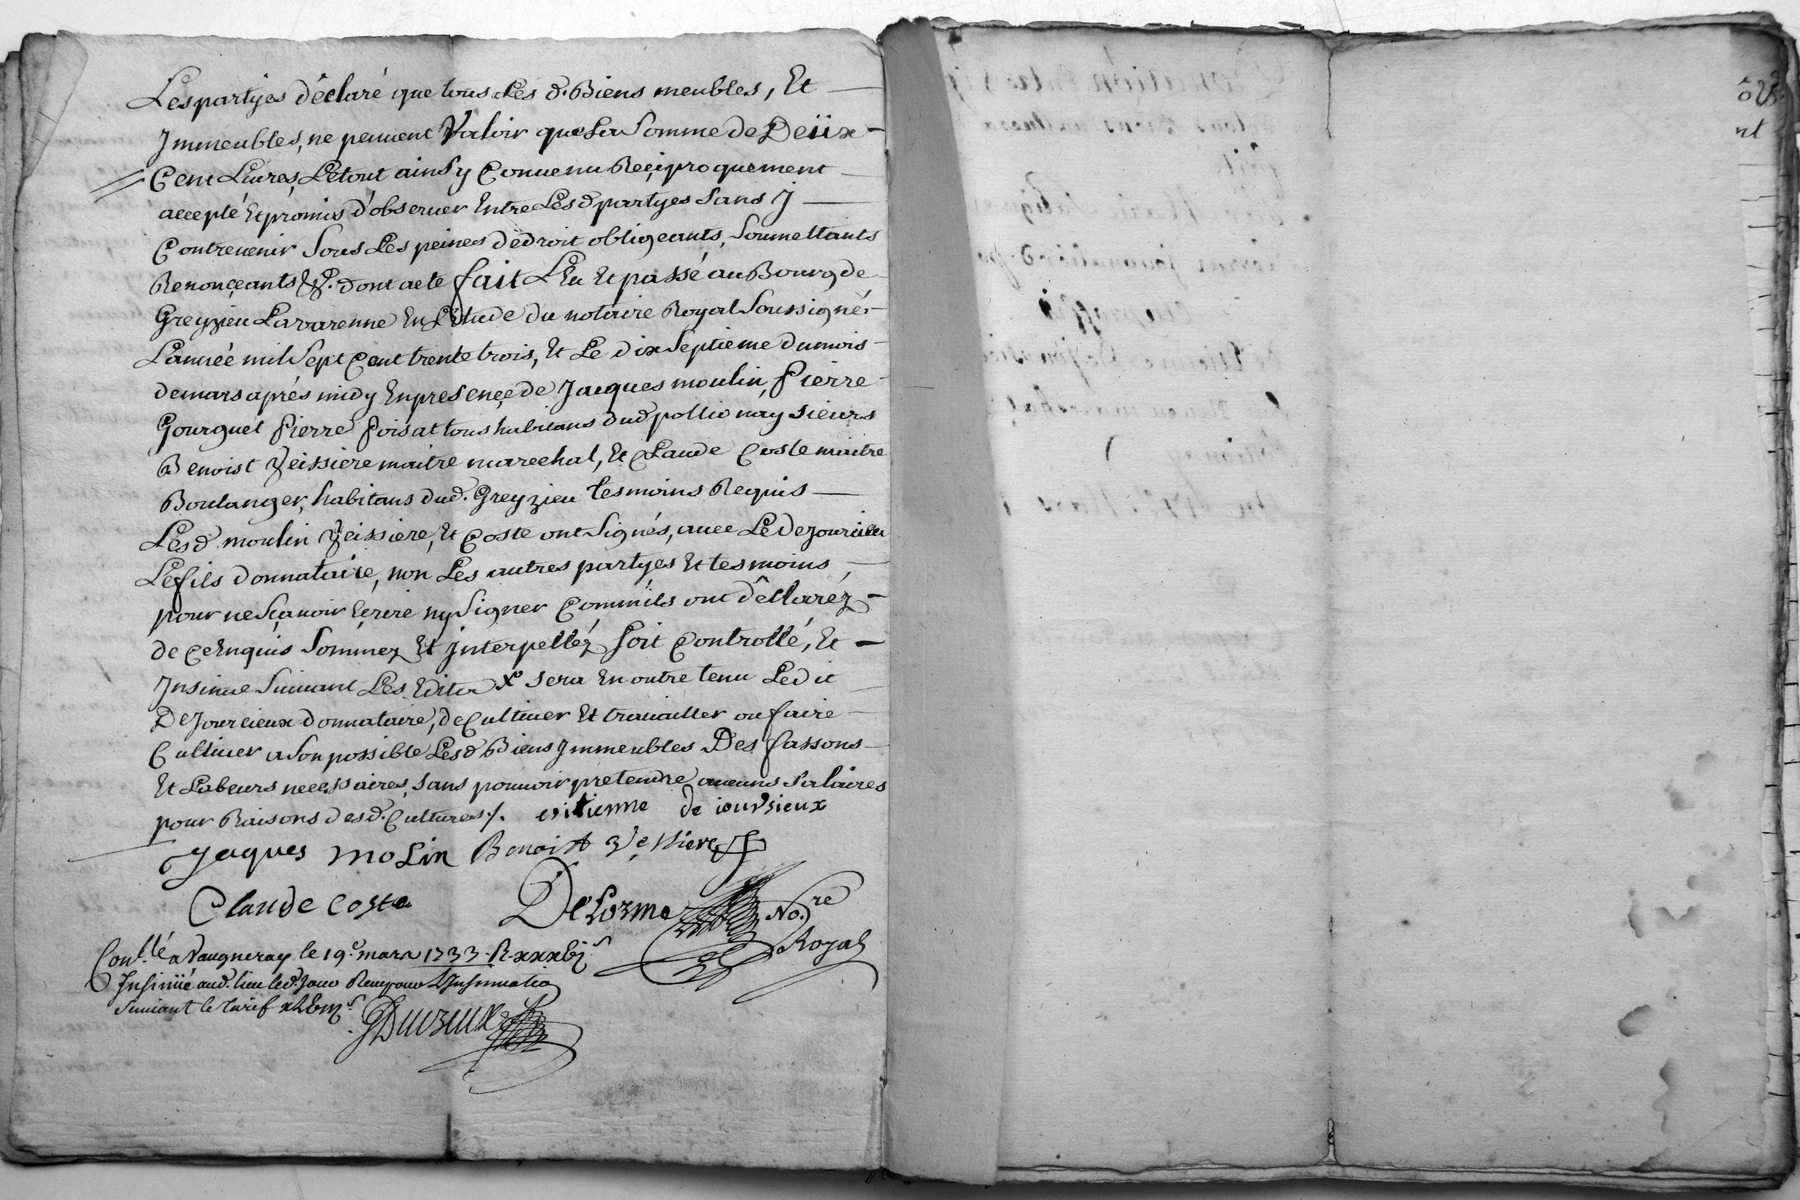 Les partyes déclaré que tous Les d. Biens meubles, Et
Jmmeubles, ne peuuent Valoir que La Somme de Deüx
Cent Liures, Le tout ainsy Conuenu Reciproquement
accepté Et promis d'obseruer Entre Lesd partyes Sans J
Contreuenir Sous Les peines de droit obligeants, Soumettants
Renonçeants &c. dont acte fait Leu Et passé au Bourg de
Greyzieu Lavarenne En L'Etude du notaire Royal Soussigné
L'année mil Sept Cent trente trois, Et Le dix Septieme du mois
de mars aprés midy En presençe de Jacques moulin, Pierre
Gourguet Pierre foisat tous habitans dud pollionay sieurs
Benoist Veissiere maitre marechal, Et Claude Coste maitre
Boulanger, habitans dud. Greyzieu tesmoins Requis
Lesd. moulin Veissiere, Et Coste ont Signés, auec Le Dejourcieu
Le fils donnataire, non Les autres partyes Et tesmoins,
pour ne Sçauoir Ecrire ny Signer Comm'ils ont déClarez
de Ce Enquis Sommez Et Jnterpelléz Soit Controllé, Et
Jnsinue Suiuant Les Edits x Sera En outre tenu Ledit
Dejourcieux donnataire, de Cultiuer Et trauailler ou faire
Cultiuer a Son possible Lesd Biens Jmmeubles Des fassons
Et Labeurs necessaires, Sans pouuoir pretendre aucuns Salaires
pour Raisons desd. Cultures /. eitienne de iourSieux
Jaques molin Benoist Veissiere
Claude Coste DeLorme No.re
Royal
Con.lé a Vaugneray le 19.e mars 1733. R. xxxbj s
Jnsinüé aud. lieu led. Jour Receu pour L'Jnsinuatio
Suiuant le tarif